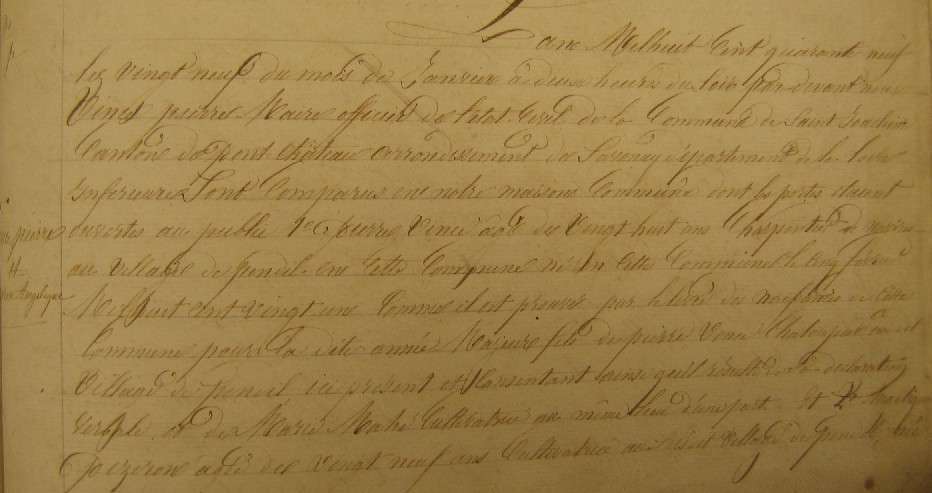 L'an Milhuit Cent quarant neuf
le vingt neuf du mois de Janvier a deux heures du soir par devant nous
Vince pierre Maire officier de letat Civil de la Commune de saint Joachim
Canton de Pont Château arrondissement de Savenay département de la loire
inferieure Sont Comparus en notre maison Commune dont les portes etaient
ouvertes au public 1° pierre Vince agé de Vingt huit ans Charpentier de navires
au Village de pendil en Cette Commune né en Cette Commune le cinq fevrier
Milhuit cent vingt un Comme il est prouvé par le livre des naissances de Cette
Commune pour la dite année Majeur fils de pierre Vince
Village de pendil ici present et Consentant ainsi qu'il résulte de sa declaration
verbale et de Marie Mahé Cultivatrice au même lieu d'une part Et 2° Angelique
agée de vingt neuf ans Cultivatrice au Village de
pierre
Angelique